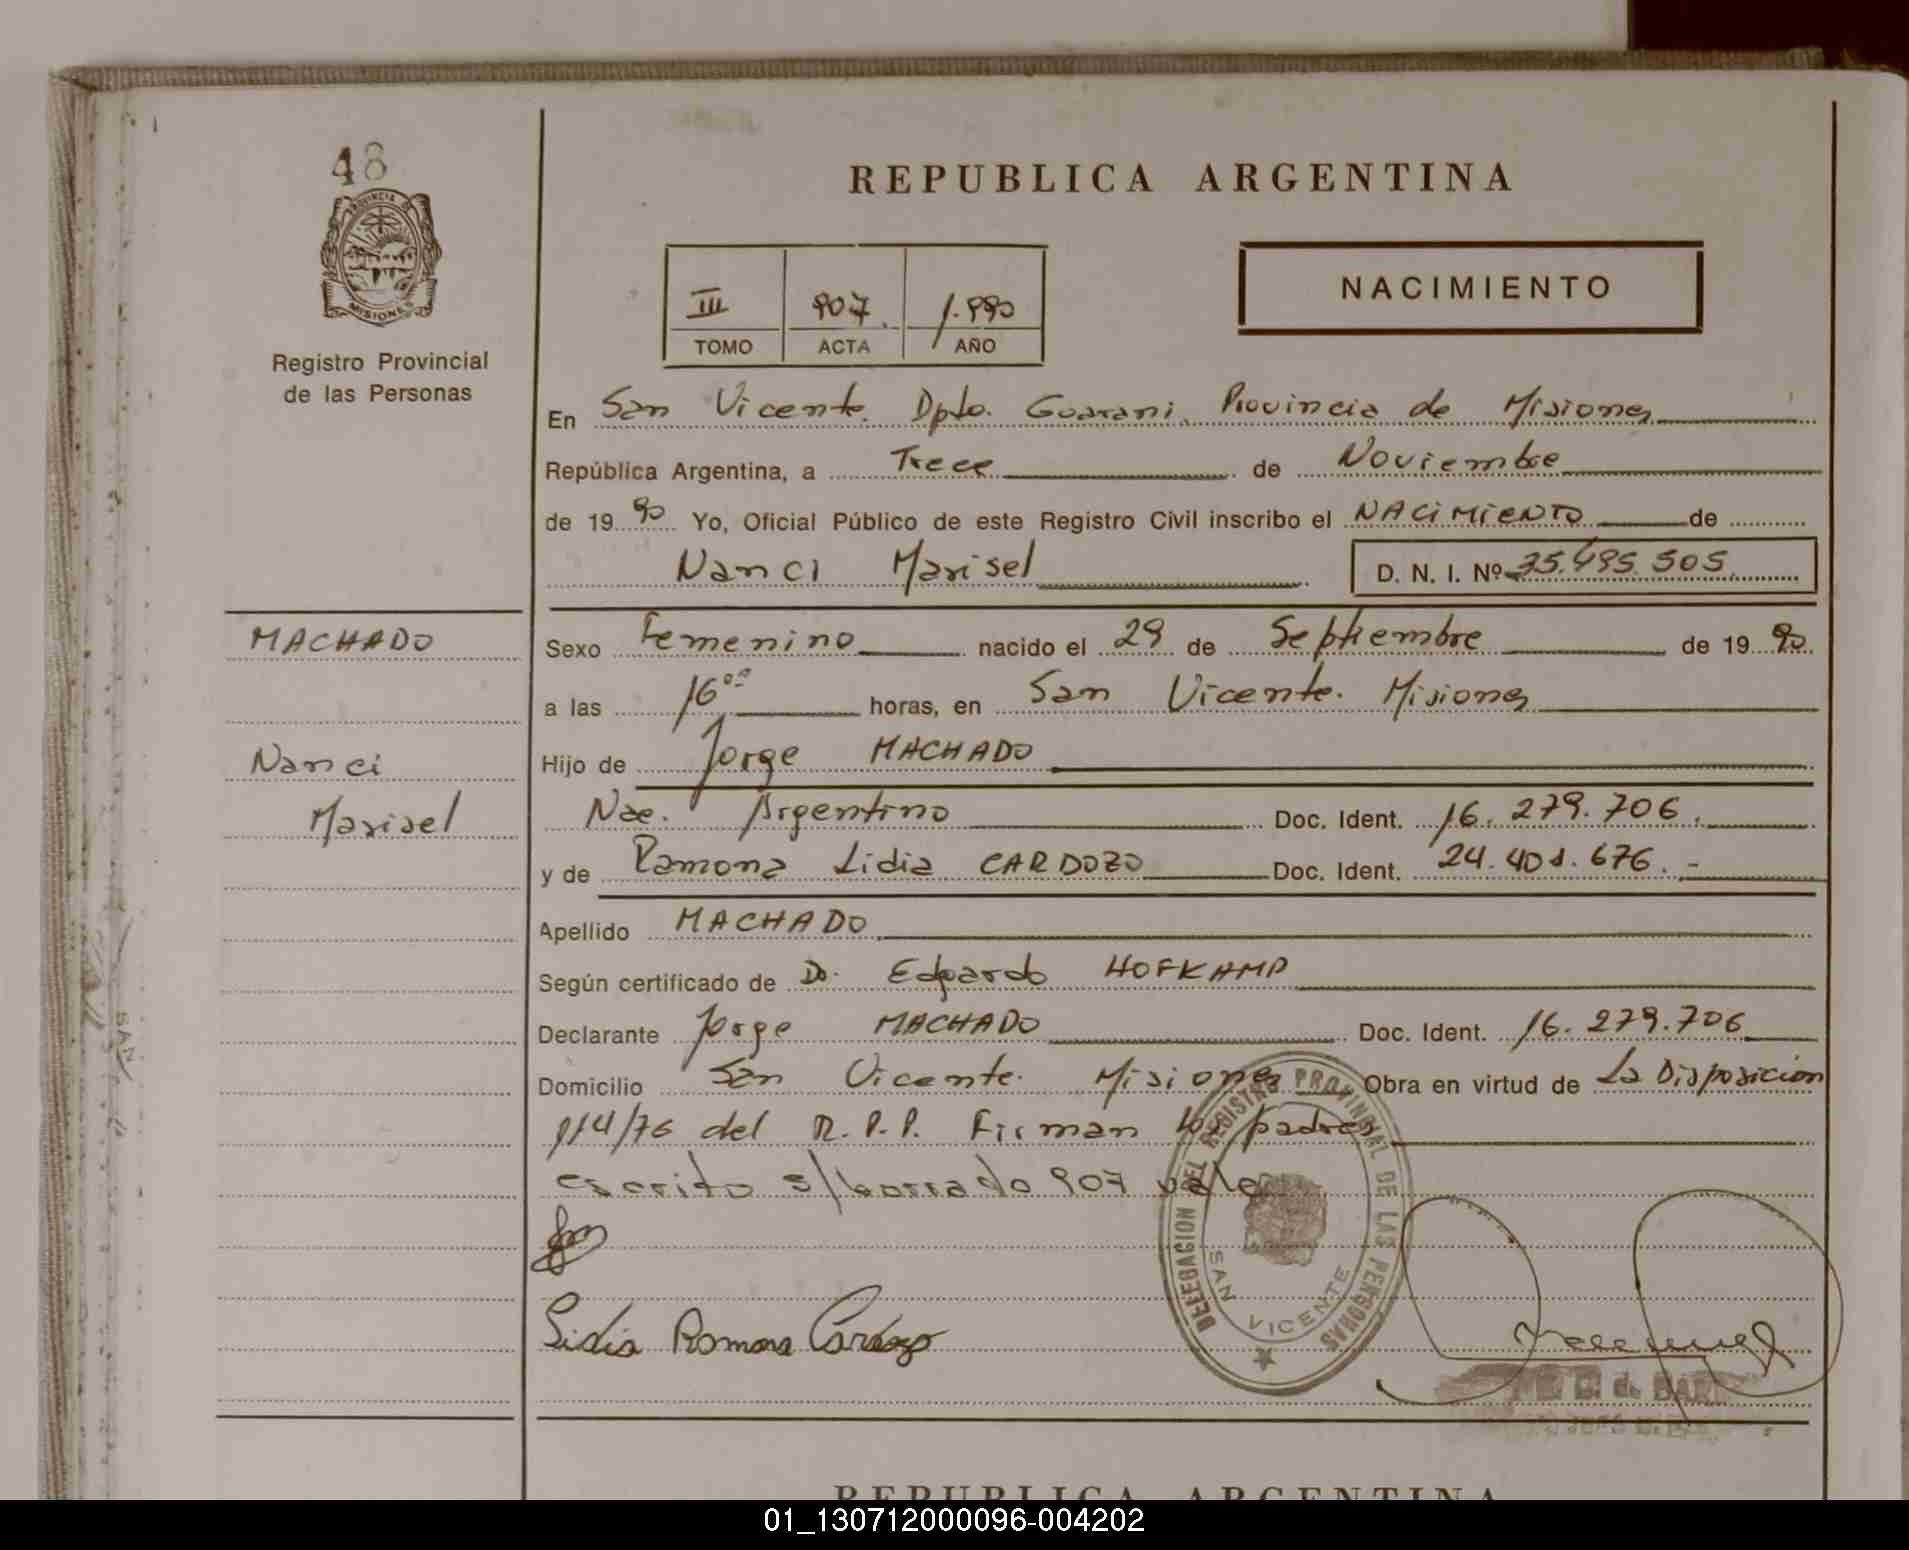 48
PROVINCIA DE
MISIONES
Registro Provincial
de las Personas
REPUBLICA ARGENTINA
III 907 1.990
TOMO ACTA AÑO
NACIMIENTO
En San Vicente. Dpto. Guarani. Provincia de Misiones
República Argentina, a Trece de Noviembre
de 19 90 Yo, Oficial Público de este Registro Civil inscribo el NACIMIENTO de
Nanci Marisel D. N. I. Nº 35.495.505
MACHADO
Nanci
Marisel
Sexo Femenino nacido el 29 de Septiembre de 19 90
a las 16⁰⁰ horas, en San Vicente. Misiones
Hijo de Jorge MACHADO
Nac. Argentino Doc. Ident. 16.279.706.
y de Ramona Lidia CARDOZO Doc. Ident. 24.401.676.-
Apellido MACHADO
Según certificado de Dr. Edgardo HOFKAMP
Declarante Jorge MACHADO Doc. Ident. 16.279.706
Domicilio San Vicente. Misiones Obra en virtud de La Disposición
114/76 del R.P.P. Firman los padres
escrito s/borrado 907 vale
Lidia Romona Cardozo
DELEGACION DEL REGISTRO PROVINCIAL DE LAS PERSONAS
SAN VICENTE
REPUBLICA ARGENTINA
01_130712000096-004202